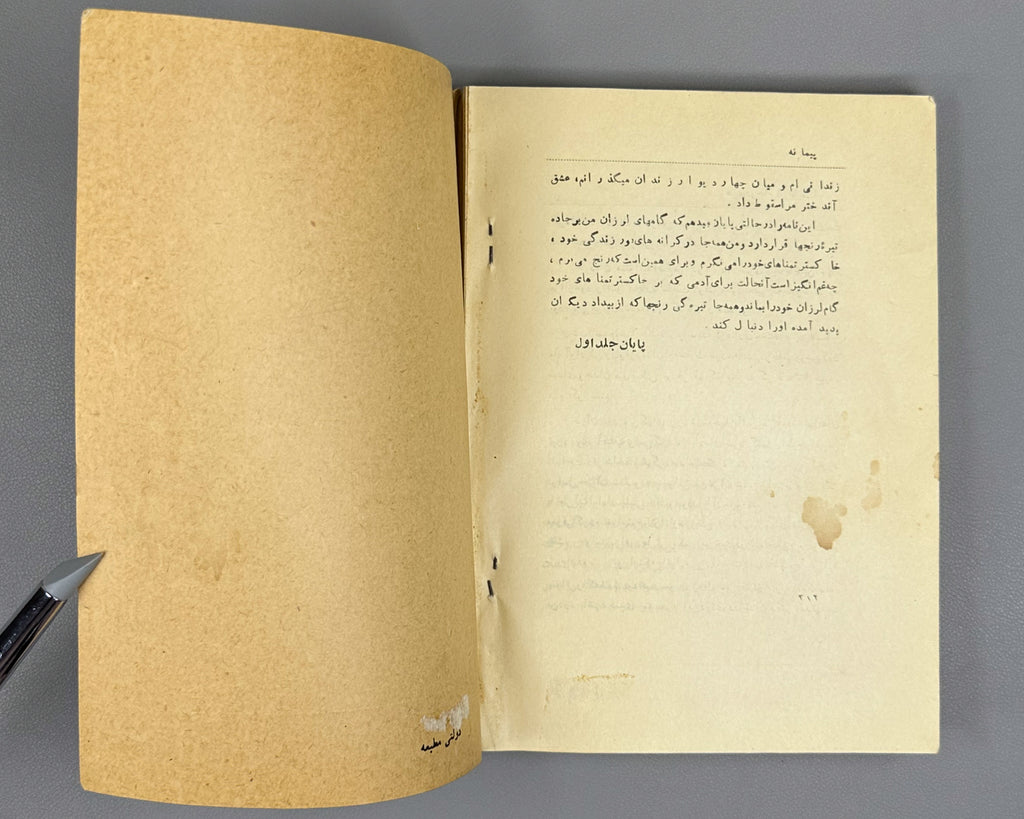 پیمانه
زندانی ام و میان چهار دیوار زندان میگذرانم، عشق
آندختر مرا سقوط داد .
این نامه را در حالتی پایان میدهم که گامهای لرزان من بر جاده
تیرهٔ رنجها قرار دارد و من همه جا در کرانه های دور زندگی خود ،
خاکستر تمناهای خود را می نگرم و برای همین است که رنج می برم ،
چه غم انگیز است آنحالت برای آدمی که بر خاکستر تمنا های خود
گام لرزان خود را بماند و همه جا تیره گی رنجها که از بیداد دیگران
پدید آمده اورا دنبال کند .
پایان جلد اول
۲۱۲
دولتی مطبعه